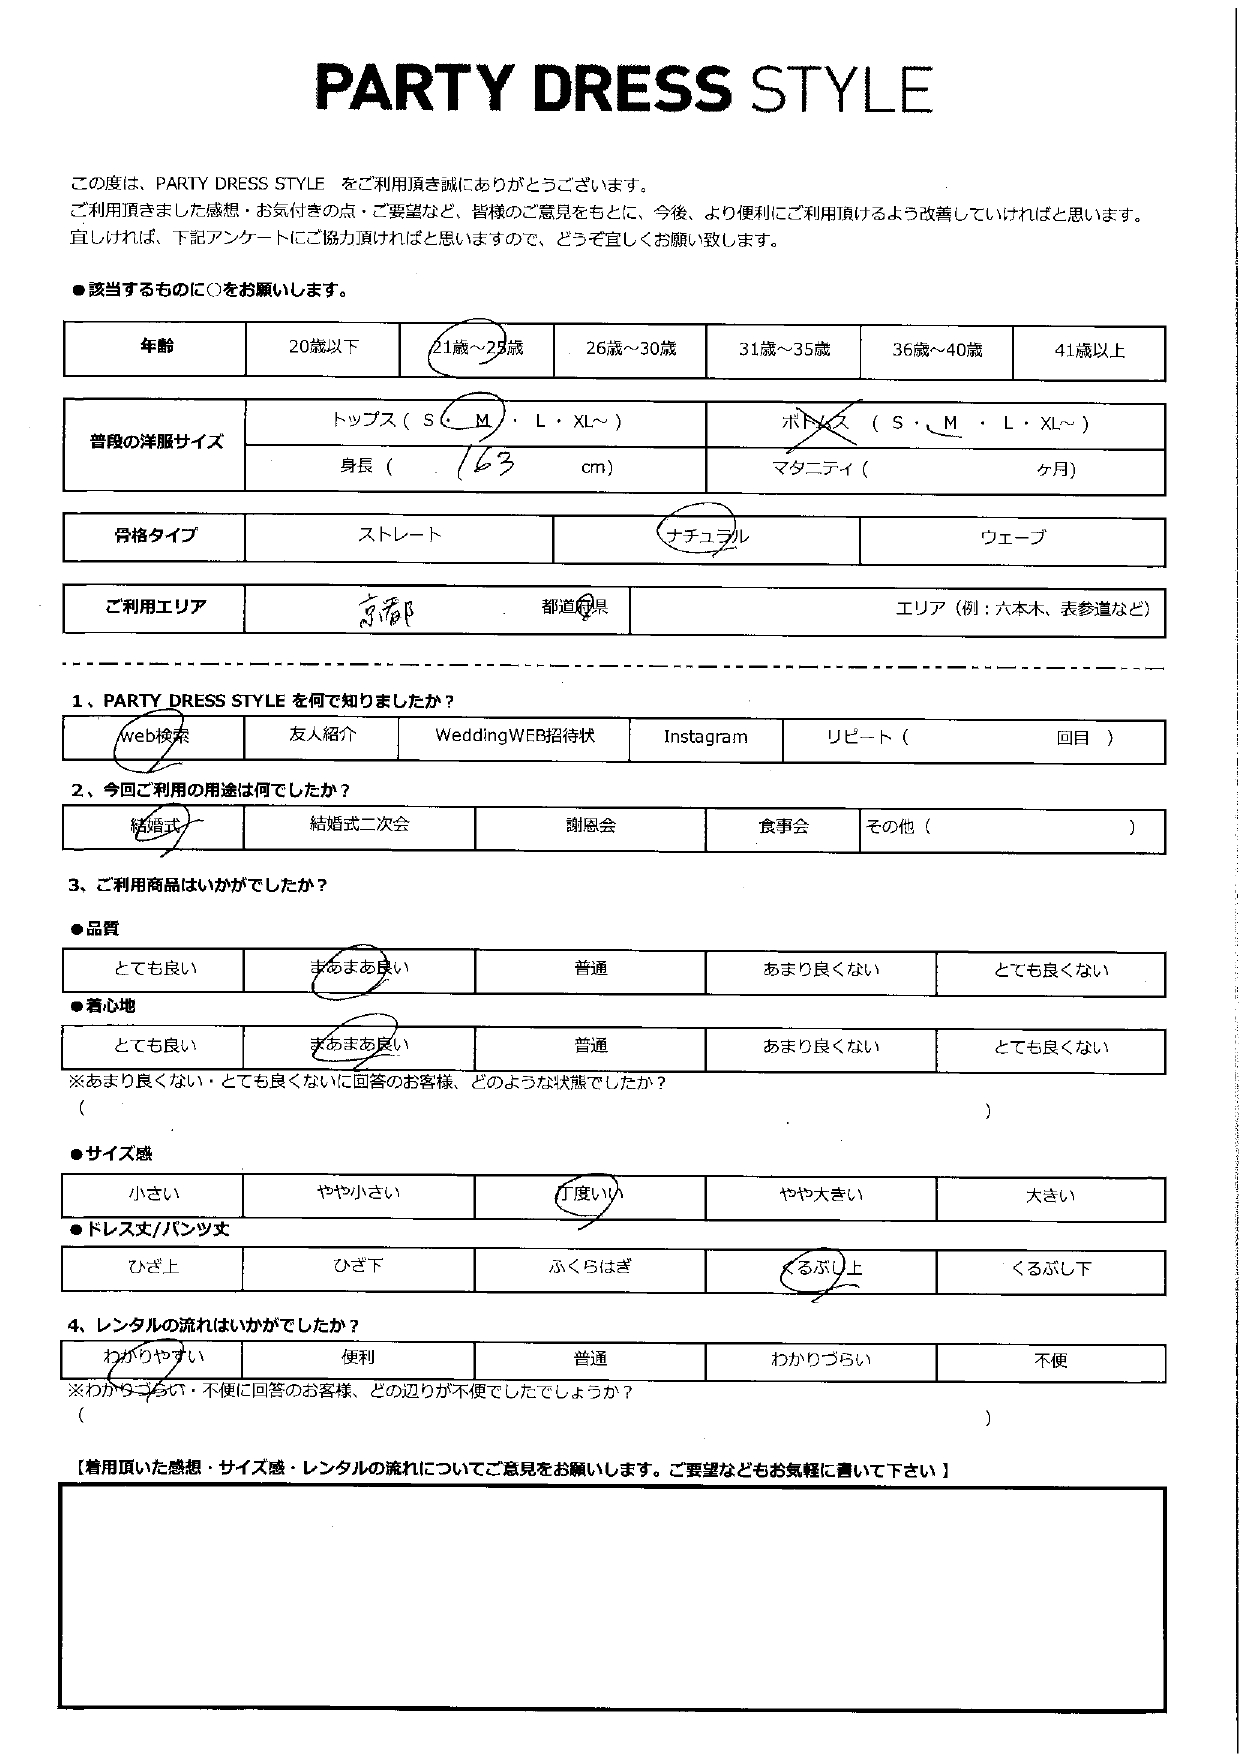 PARTY DRESS STYLE
この度は、PARTY DRESS STYLE をご利用頂き誠にありがとうございます。
ご利用頂きました感想・お気付きの点・ご要望など、皆様のご意見をもとに、今後、より便利にご利用頂けるよう改善していければと思います。
宜しければ、下記アンケートにご協力頂ければと思いますので、どうぞ宜しくお願い致します。
●該当するものに○をお願いします。
年齢 20歳以下 21歳～25歳 26歳～30歳 31歳～35歳 36歳～40歳 41歳以上
普段の洋服サイズ
トップス ( S ・ M ・ L ・ XL～ ) ボトムス ( S ・ M ・ L ・ XL～ )
身長 ( 163 cm) マタニティ ( ケ月)
骨格タイプ ストレート ナチュラル ウェーブ
ご利用エリア 京都 都道府県 エリア（例：六本木、表参道など）
1、PARTY DRESS STYLE を何で知りましたか？
web検索 友人紹介 WeddingWEB招待状 Instagram リピート ( 回目 )
2、今回ご利用の用途は何でしたか？
結婚式 結婚式二次会 謝恩会 食事会 その他 ( )
3、ご利用商品はいかがでしたか？
●品質
とても良い まあまあ良い 普通 あまり良くない とても良くない
●着心地
とても良い まあまあ良い 普通 あまり良くない とても良くない
※あまり良くない・とても良くないに回答のお客様、どのような状態でしたか？
( )
●サイズ感
小さい やや小さい 丁度いい やや大きい 大きい
●ドレス丈/パンツ丈
ひざ上 ひざ下 ふくらはぎ くるぶし上 くるぶし下
4、レンタルの流れはいかがでしたか？
わかりやすい 便利 普通 わかりづらい 不便
※わかりづらい・不便に回答のお客様、どの辺りが不便でしたでしょうか？
( )
【着用頂いた感想・サイズ感・レンタルの流れについてご意見をお願いします。ご要望などもお気軽に書いて下さい】